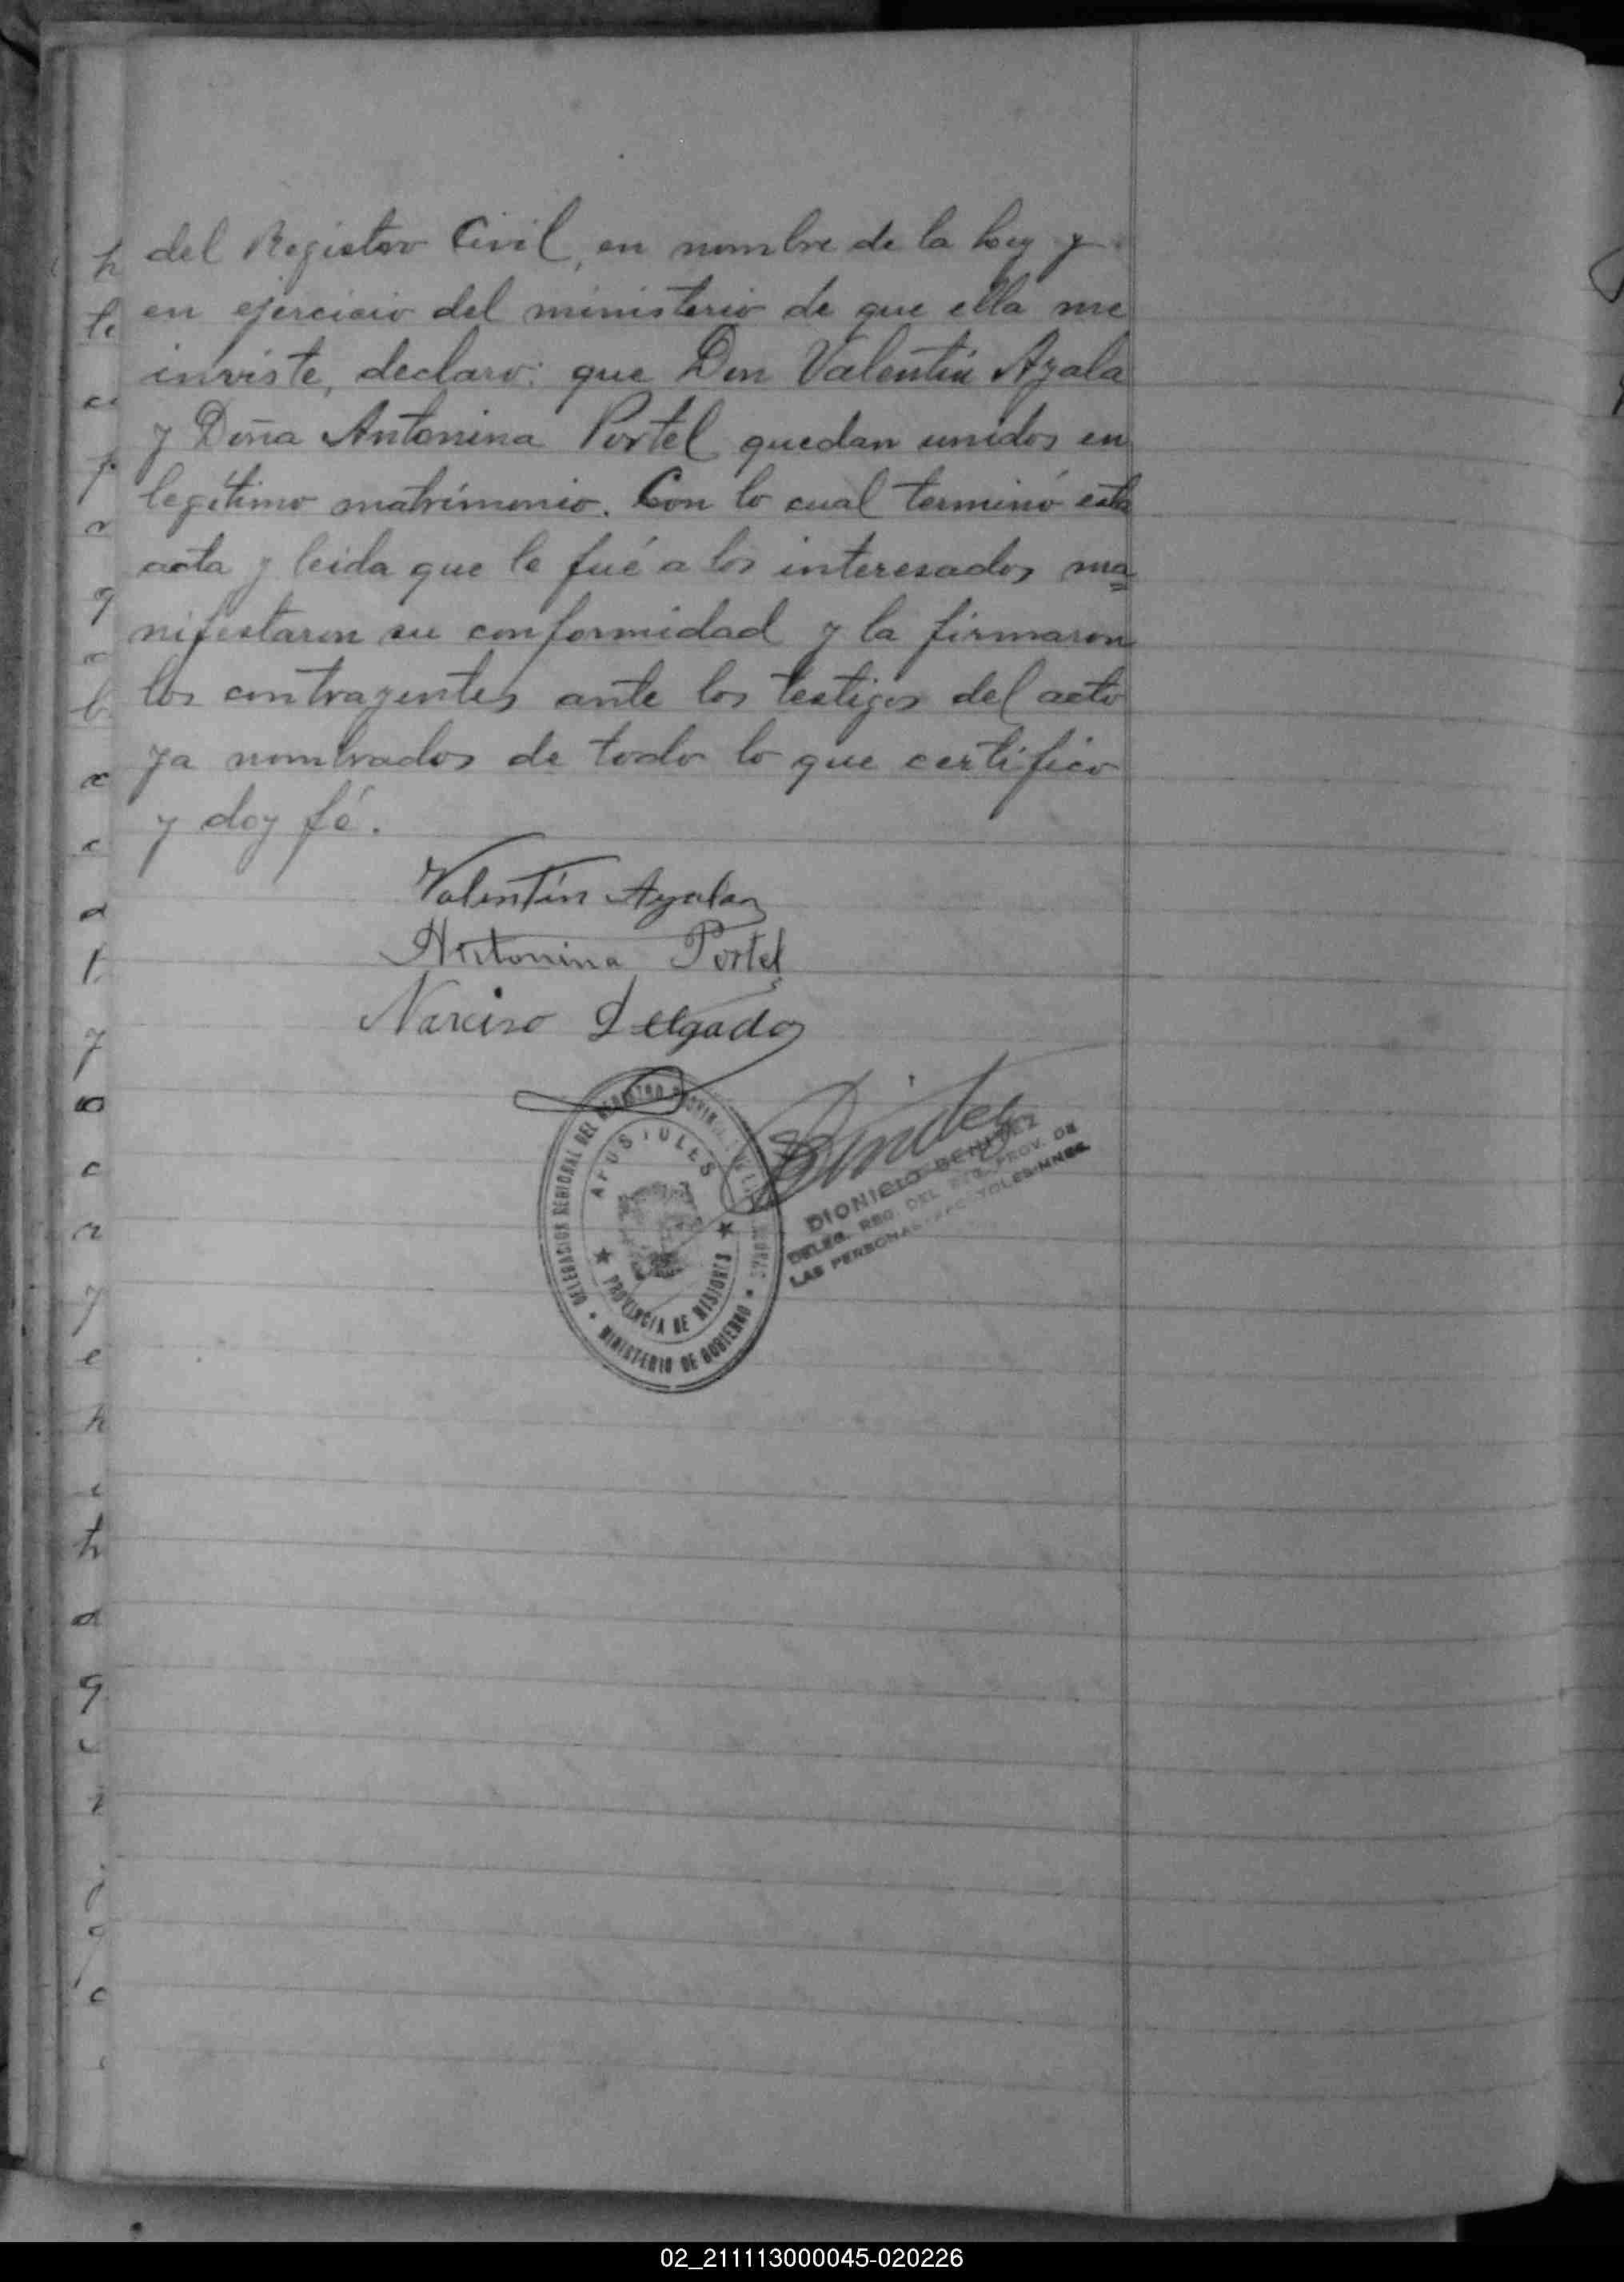 del Registro Civil, en nombre de la Ley y
en ejercicio del ministerio de que ella me
inviste, declaro: que Don Valentín Ayala
y Doña Antonina Portel quedan unidos en
legítimo matrimonio. Con lo cual terminó esta
acta y leida que le fué a los interesados ma=
nifestaron su conformidad y la firmaron
los contrayentes ante los testigos del acto
ya nombrados de todo lo que certifico
y doy fé.
Valentín Ayala
Antonina Portel
Narciso Delgado
Benitez
DIONICIO BENITEZ
DELEG. REG. DEL REG. PROV. DE
LAS PERSONAS
DELEGACION REGIONAL DEL REGISTRO PROVINCIAL DE LAS PERSONAS
APOSTOLES
PROVINCIA DE MISIONES
MINISTERIO DE GOBIERNO
02_211113000045-020226